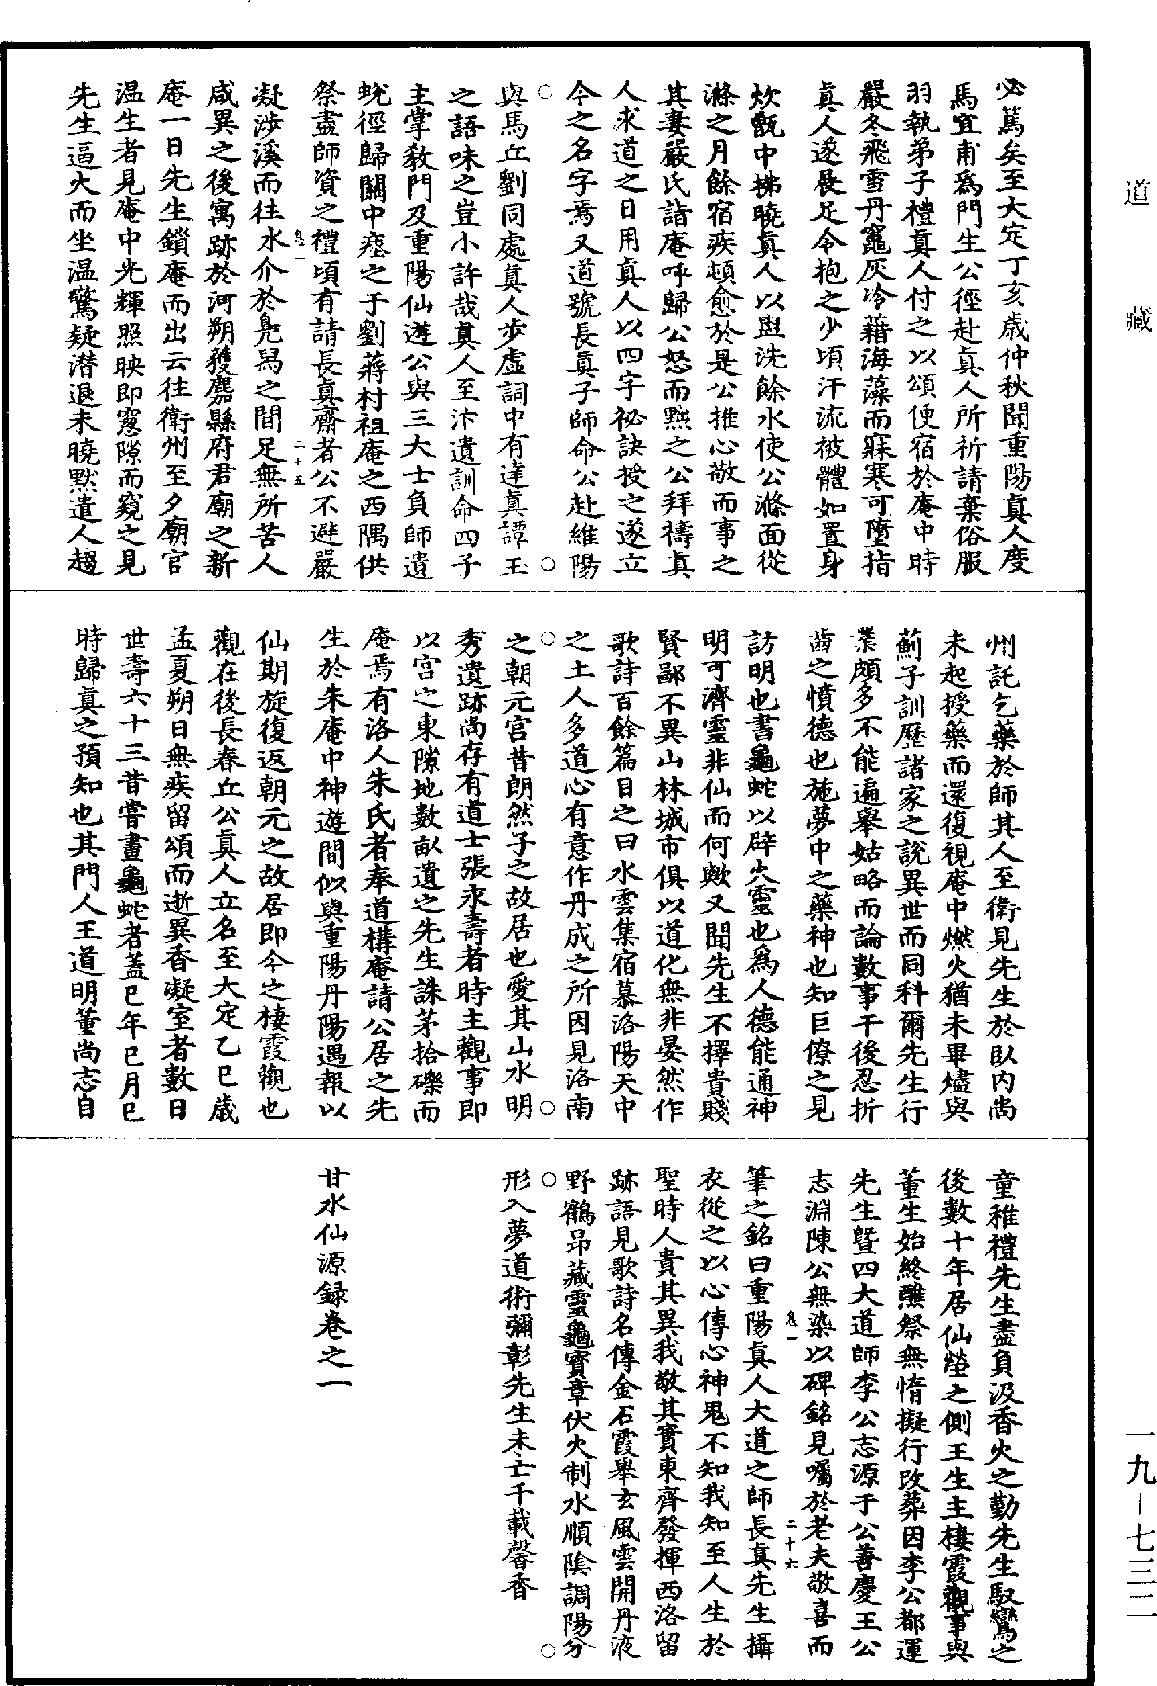 必篤矣至大定丁亥歲仲秋聞重陽真人度
馬宜甫爲門生公徑赴真人所祈請棄俗服
羽執弟子禮真人付之以頌使宿於庵中時
嚴冬飛雪丹竈灰冷藉海藻而寐寒可墮指
真人遂展足令抱之少頃汗流被體如置身
炊甑中拂曉真人以盥洗餘水使公滌面從
滌之月餘宿疾頓愈於是公推心敬而事之
其妻嚴氏詣庵呼歸公怒而黜之公拜禱真
人求道之日用真人以四字祕訣授之遂立
今之名字焉又道號長真子師命公赴維陽
與馬丘劉同處真人步虛詞中有達真譚玉
之語味之豈小許哉真人至汴遺訓命四子
主掌教門及重陽仙遊公與三大士負師遺
蛻徑歸關中瘞之于劉蔣村祖庵之西隅供
祭盡師資之禮頃有請長真齋者公不避嚴
卷一 二十五
凝涉溪而往水介於鳧舄之間足無所苦人
咸異之後寓跡於河朔獲鹿縣府君廟之新
庵一日先生鎖庵而出云往衛州至夕廟官
温生者見庵中光輝照映即窻隙而窺之見
先生逼火而坐温驚疑潛退未曉默遣人趨
州託乞藥於師其人至衛見先生於臥内尚
未起授藥而還復視庵中燃火猶未畢燼與
薊子訓歷諸家之説異世而同科爾先生行
業頗多不能遍舉姑略而論數事于後忍折
齒之憤德也施夢中之藥神也知巨僚之見
訪明也書龜蛇以辟火靈也爲人德能通神
明可濟靈非仙而何歟又聞先生不擇貴賤
賢鄙不異山林城市俱以道化無非晏然作
歌詩百餘篇目之曰水雲集宿慕洛陽天中
之土人多道心有意作丹成之所因見洛南
之朝元宫昔朗然子之故居也愛其山水明
秀遺跡尚存有道士張永壽者時主觀事即
以宫之東隙地數畝遺之先生誅茅拾礫而
庵焉有洛人朱氏者奉道構庵請公居之先
生於朱庵中神遊間似與重陽丹陽遇報以
仙期旋復返朝元之故居即今之棲霞觀也
觀在後長春丘公真人立名至大定乙巳歲
孟夏朔日無疾留頌而逝異香凝室者數日
世壽六十三昔嘗畫龜蛇者蓋巳年巳月巳
時歸真之預知也其門人王道明董尚志自
童稚禮先生盡負汲香火之勤先生馭鸞之
後數十年居仙塋之側王生主棲霞觀事與
董生始終醮祭無惰擬行改葬因李公都運
先生暨四大道師李公志源于公善慶王公
志淵陳公無染以碑銘見囑於老夫敬喜而
卷一 二十六
筆之銘曰重陽真人大道之師長真先生攝
衣從之以心傳心神鬼不知我知至人生於
聖時人貴其異我敬其實東齊發揮西洛留
跡語見歌詩名傳金石霞舉玄風雲開丹液
野鶴昂藏靈龜寳章伏火制水順陰調陽分
形入夢道術彌彰先生未亡千載馨香
甘水仙源録卷之一
道藏
一九－七三二